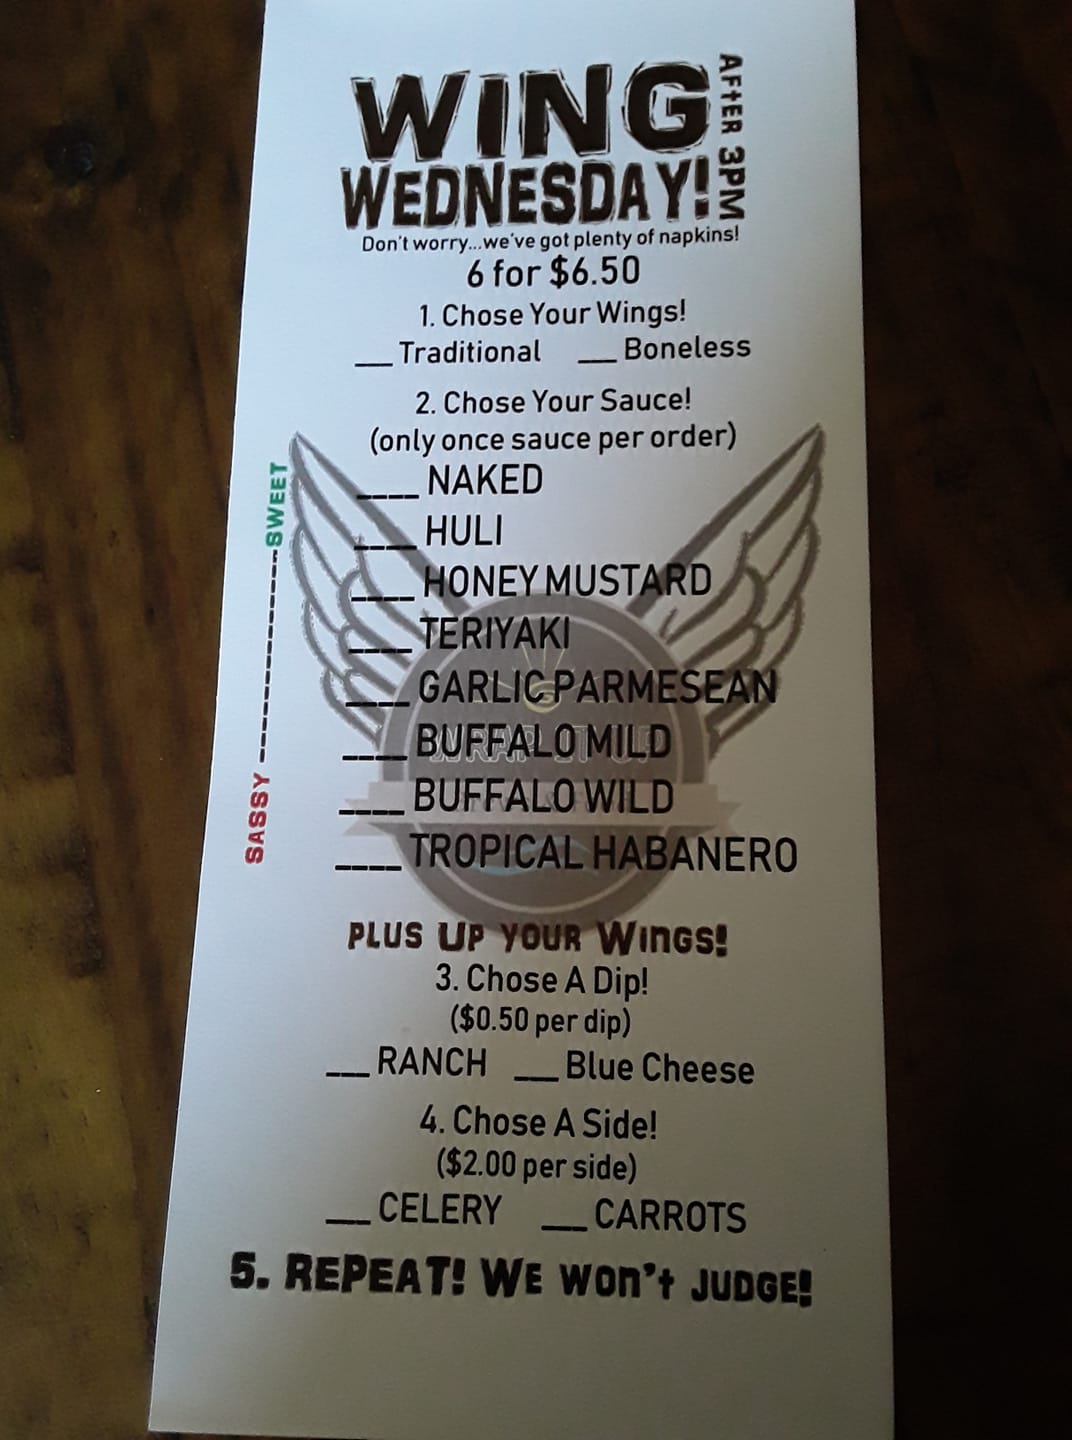 WING
WEDNESDAY!
AFTER 3PM
Don't worry...we've got plenty of napkins!
6 for $6.50
1. Chose Your Wings!
__ Traditional __ Boneless
2. Chose Your Sauce!
(only once sauce per order)
SWEET
SASSY
____ NAKED
____ HULI
____ HONEY MUSTARD
____ TERIYAKI
____ GARLIC PARMESEAN
____ BUFFALO MILD
WRAP IT UP
____ BUFFALO WILD
____ TROPICAL HABANERO
PLUS UP YOUR WINGS!
3. Chose A Dip!
($0.50 per dip)
__ RANCH __ Blue Cheese
4. Chose A Side!
($2.00 per side)
__ CELERY __ CARROTS
5. REPEAT! WE WON'T JUDGE!